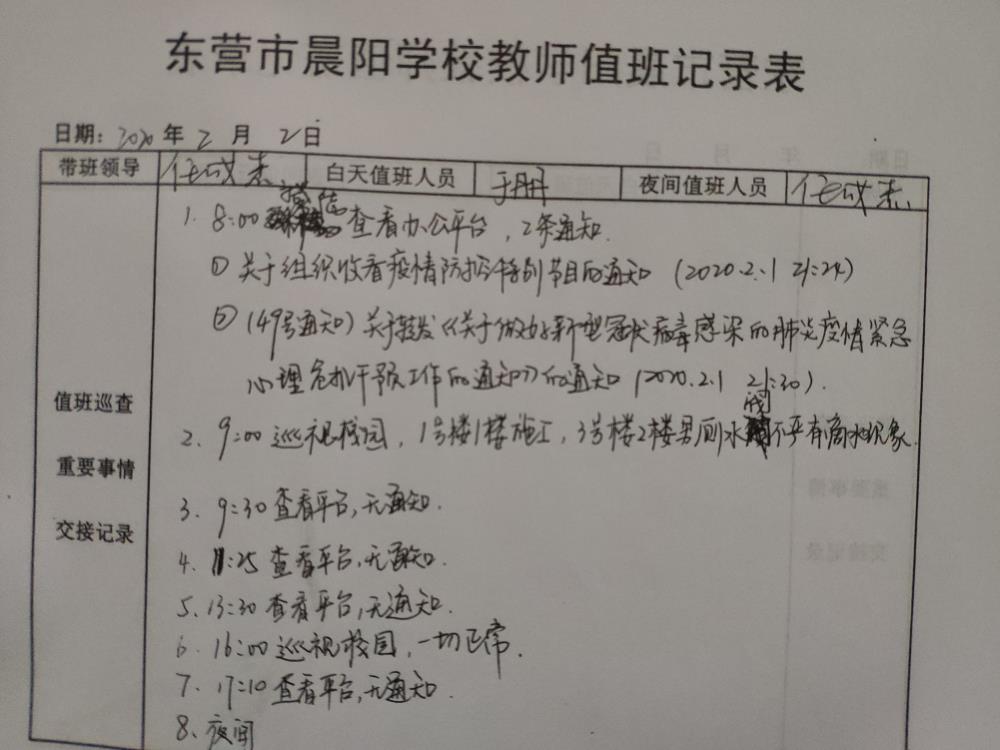 东营市晨阳学校教师值班记录表
日期：2020年2月2日
带班领导 任成杰 白天值班人员 于册 夜间值班人员 任成杰
1. 8:00 查看办公平台，2条通知.
① 关于组织收看疫情防控特别节目的通知（2020.2.1 21:24）
②（49号通知）关于转发《关于做好新型冠状病毒感染的肺炎疫情紧急
心理危机干预工作的通知》的通知（2020.2.1 21:30）.
值班巡查
2. 9:00 巡视校园，1号楼1楼施工，3号楼2楼男厕水阀不严有滴水现象.
重要事情
3. 9:30 查看平台,无通知.
交接记录
4. 11:25 查看平台,无通知.
5. 13:30 查看平台,无通知.
6. 16:00 巡视校园，一切正常.
7. 17:10 查看平台,无通知.
8. 夜间